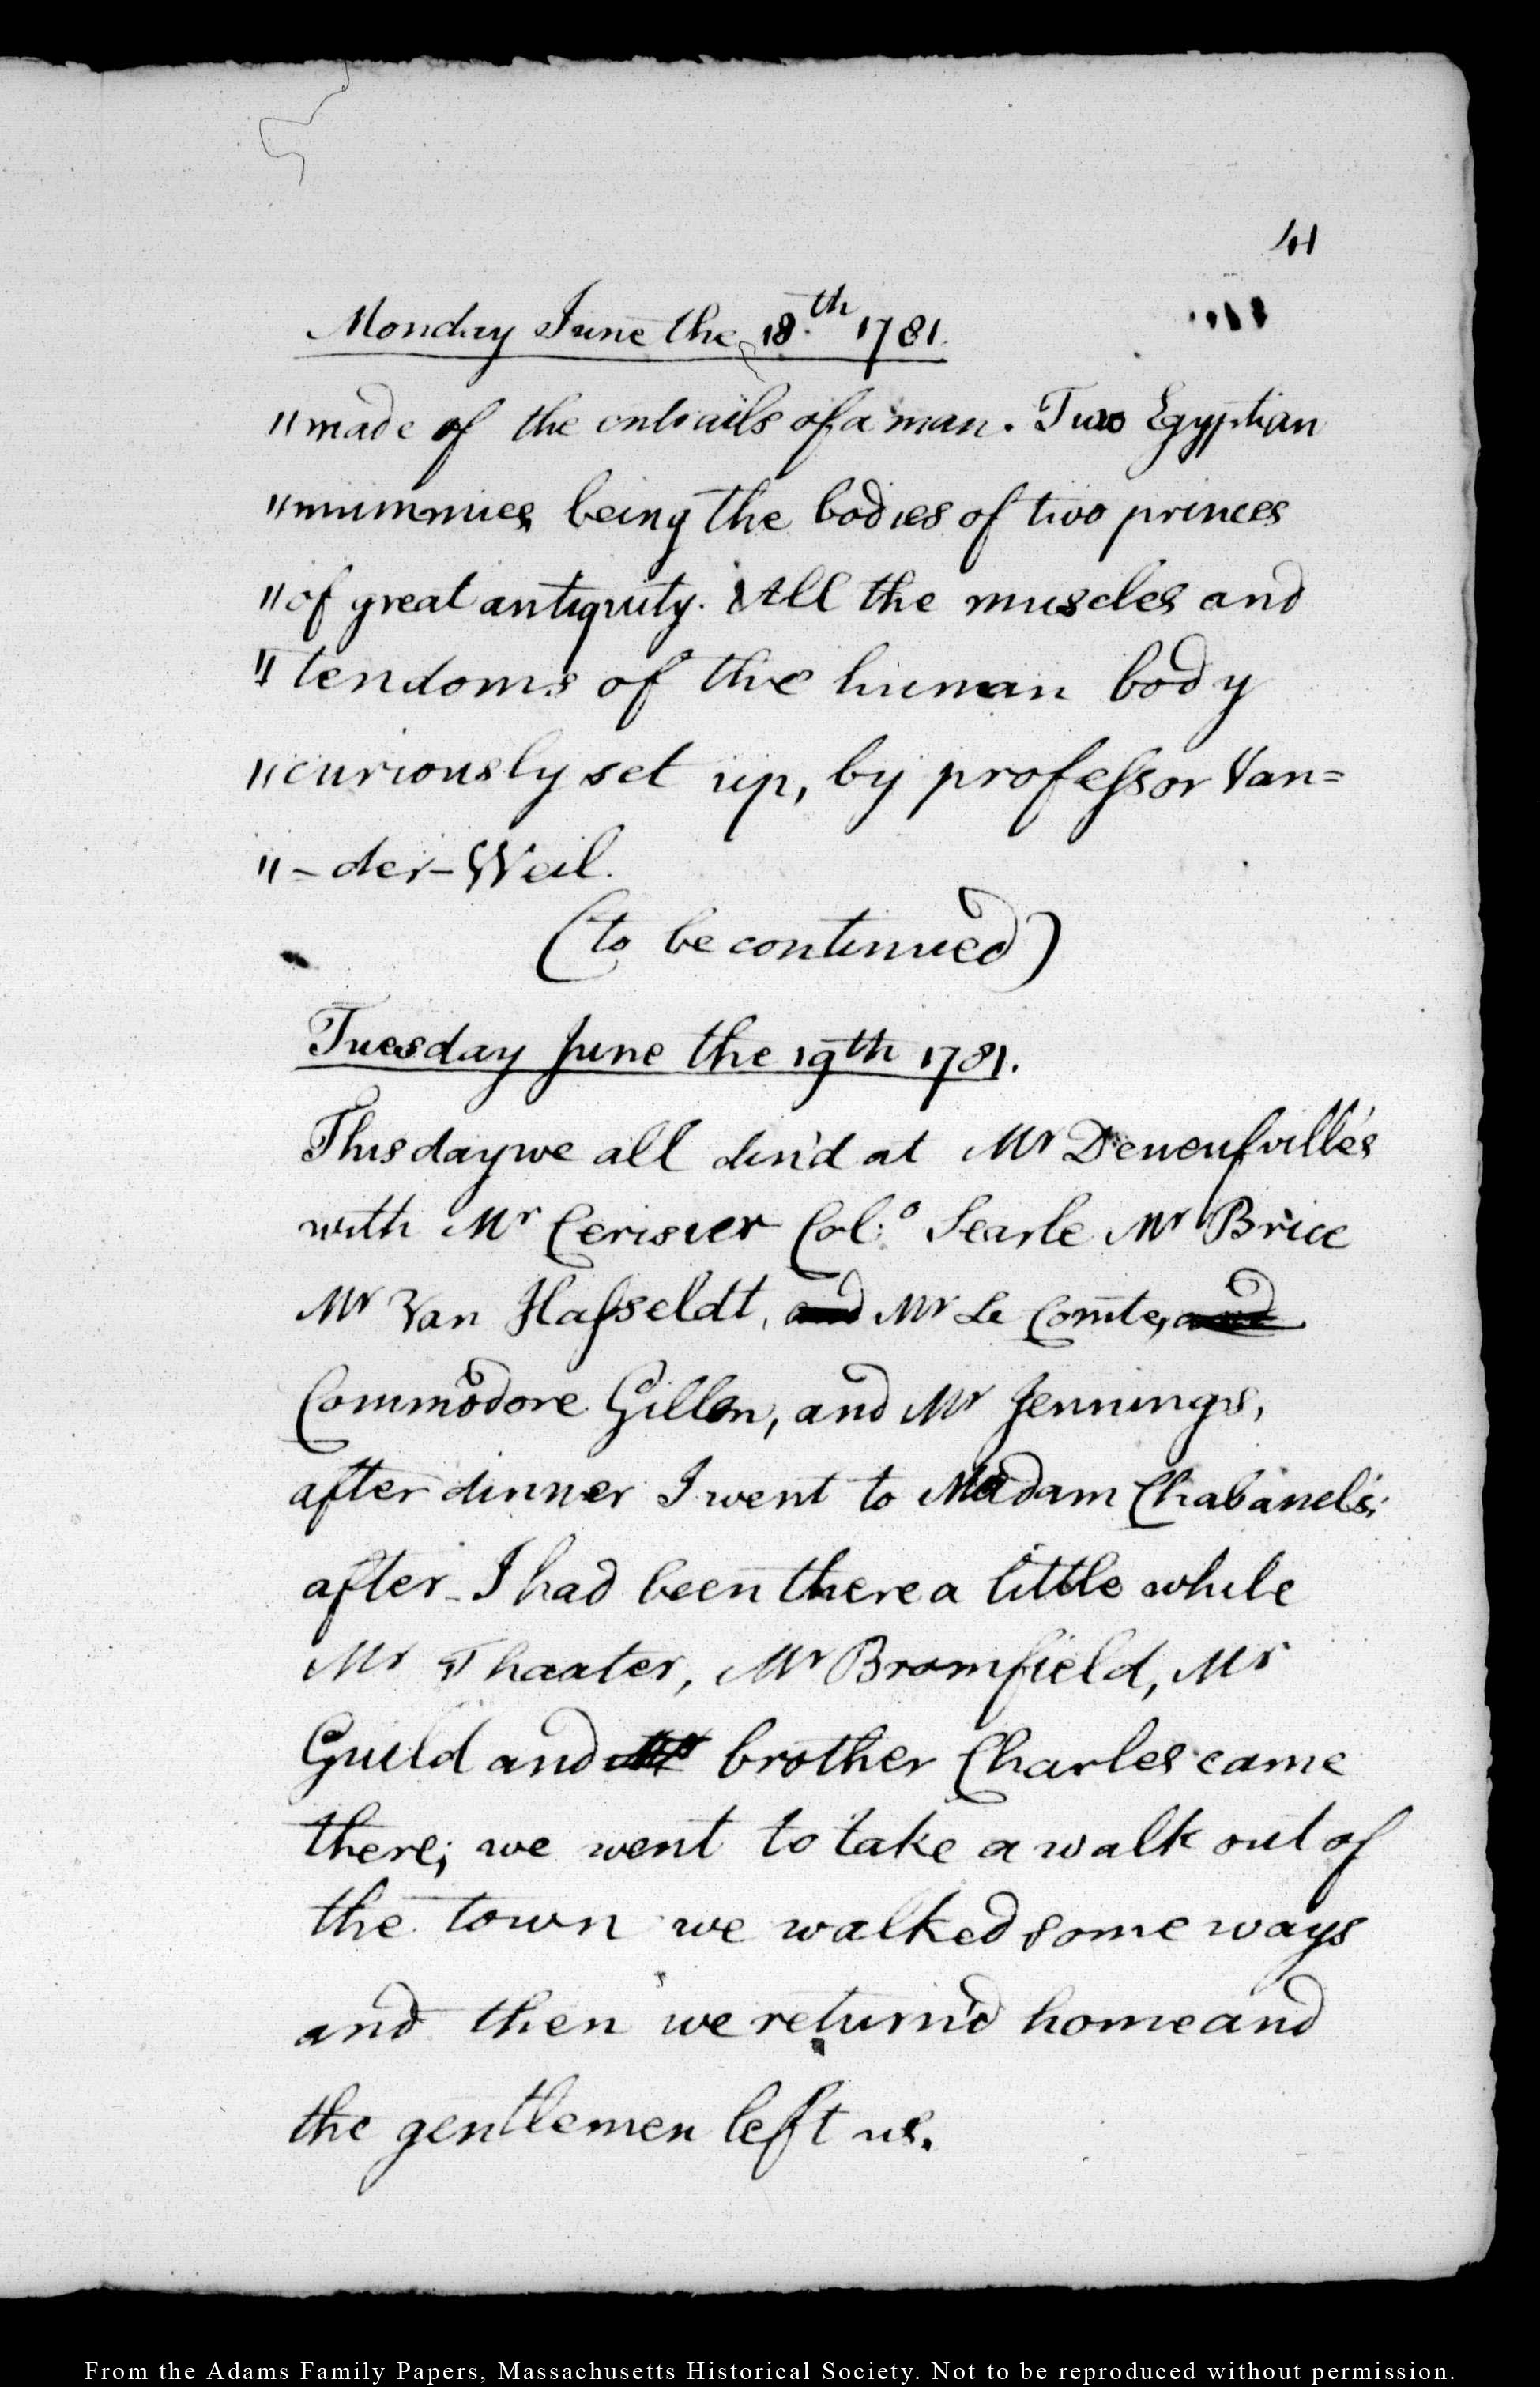 41
Monday June the 18.th 1781.
"made of the entrails of a man. Two Egyptian
"mummies, being the bodies of two princes
"of great antiquity. All the muscles and
"tendoms of the human body
"curiously set up, by professor Van=
"-der-Weil.
(to be continued)
Tuesday June the 19th 1781.
This day we all din'd at Mr Deneufville's
with Mr Cerisier Col:o Searle Mr Brice
Mr Van Hasseldt, and Mr Le Comte, and
Commodore Gillon, and Mr Jennings,
after dinner I went to Madam Chabanel's;
after I had been there a little while
Mr Thaxter, Mr Bromfield, Mr
Guild and brother Charles came
there; we went to take a walk out of
the town we walked some ways
and then we return'd home and
the gentlemen left us.
From the Adams Family Papers, Massachusetts Historical Society. Not to be reproduced without permission.